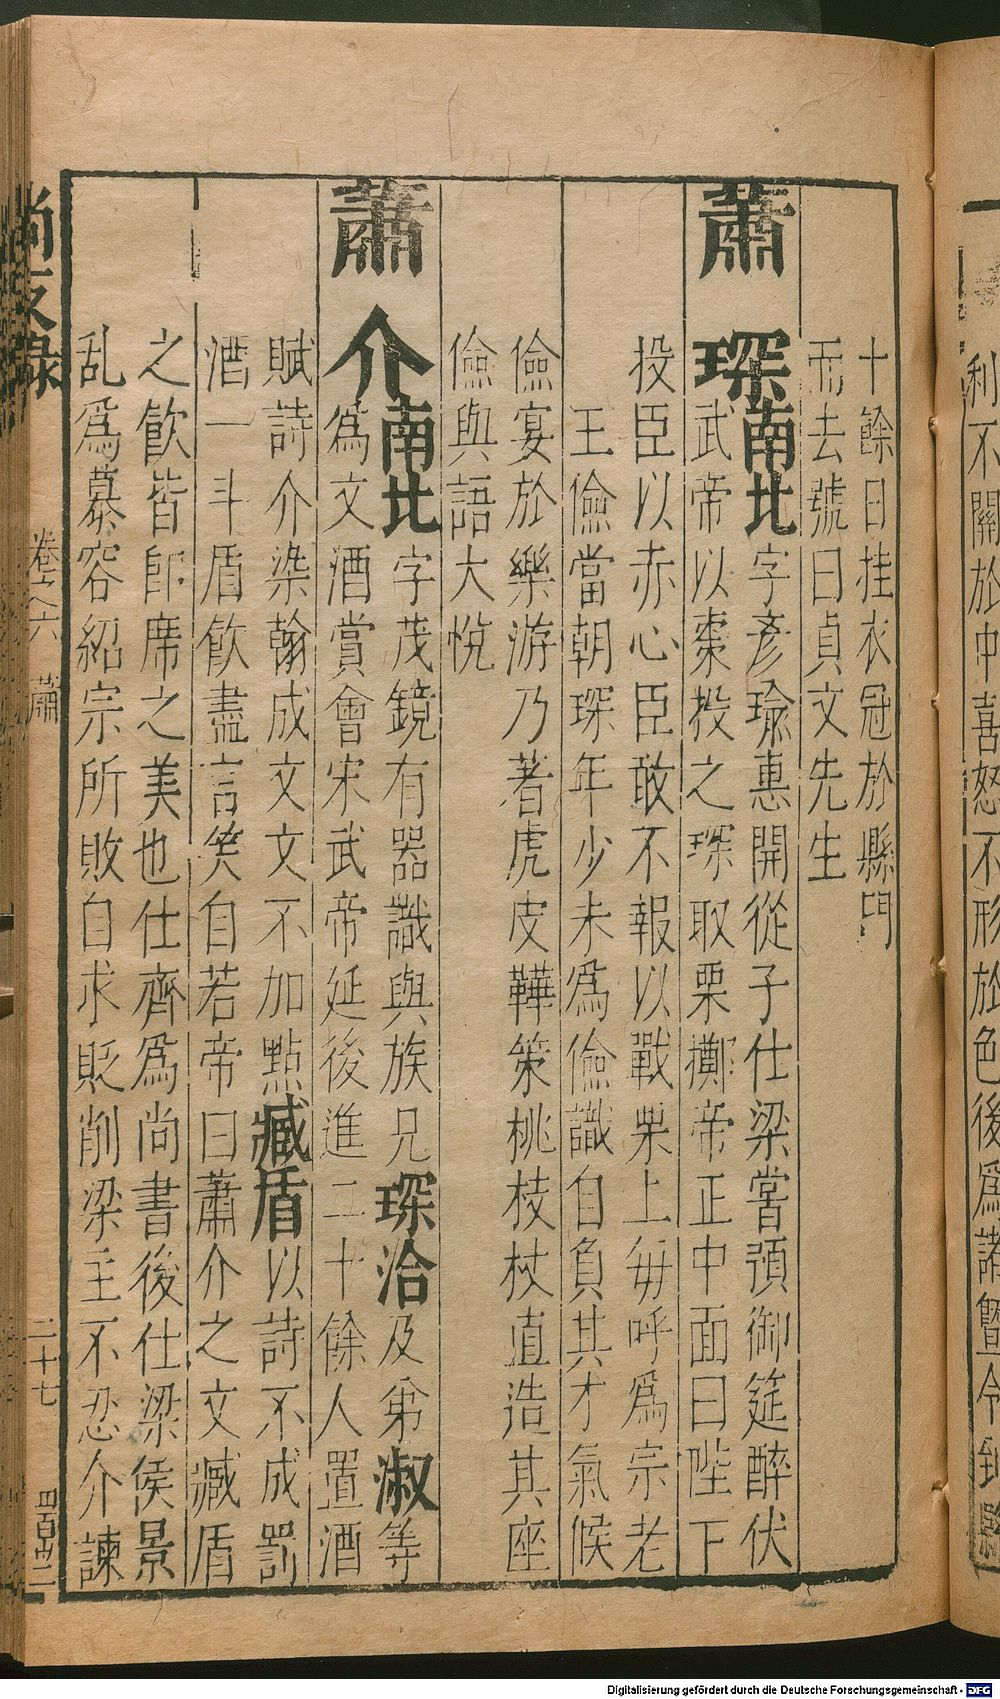 利不關於中喜怒不形於色後爲諸暨令到縣
十餘日挂衣冠於縣門
而去號曰貞文先生
蕭琛南北字彥瑜惠開從子仕梁嘗預御筵醉伏
武帝以棗投之琛取栗擲帝正中面曰陛下
投臣以赤心臣敢不報以戰栗上每呼爲宗老
王儉當朝琛年少未爲儉識自負其才氣候
儉宴於樂游乃著虎皮鞾策桃枝杖直造其座
儉與語大悅
蕭介南北字茂鏡有器識與族兄琛洽及弟淑等
爲文酒賞會宋武帝延後進二十餘人置酒
賦詩介染翰成文文不加點臧盾以詩不成罰
酒一斗盾飮盡言笑自若帝曰蕭介之文臧盾
之飮皆卽席之美也仕齊爲尚書後仕梁侯景
乱爲慕容紹宗所敗自求貶削梁主不忍介諫
尚友錄 卷之六 蕭 二十七 四百
Digitalisierung gefördert durch die Deutsche Forschungsgemeinschaft - DFG